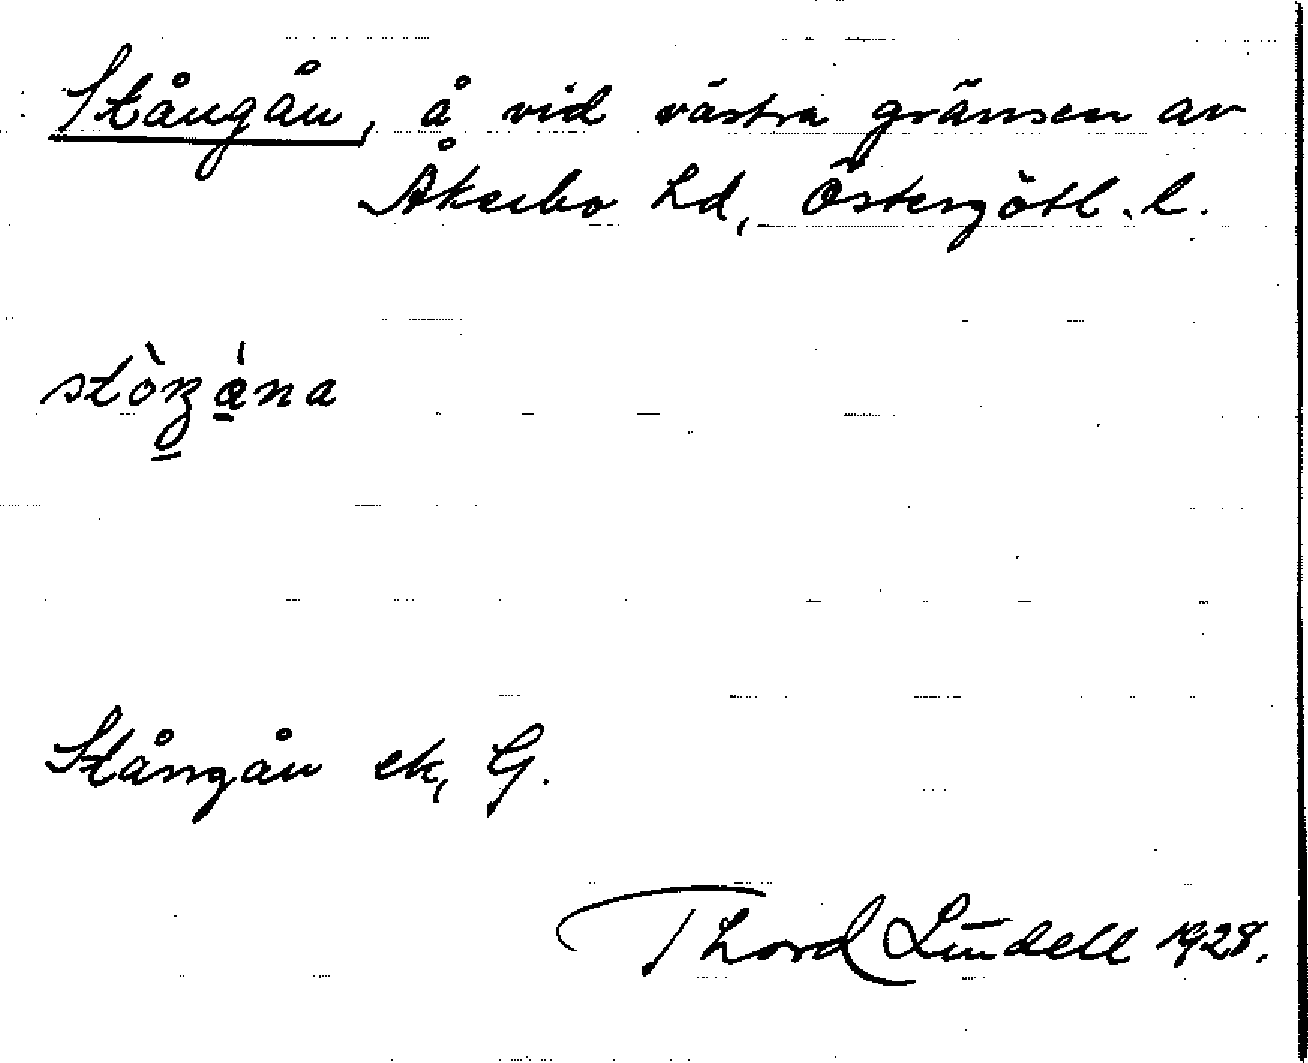 Stångån, å vid västra gränsen av
Åkerbo hd, Östergötl. l.
Stångån ek, G.
Thord Lindell 1928.